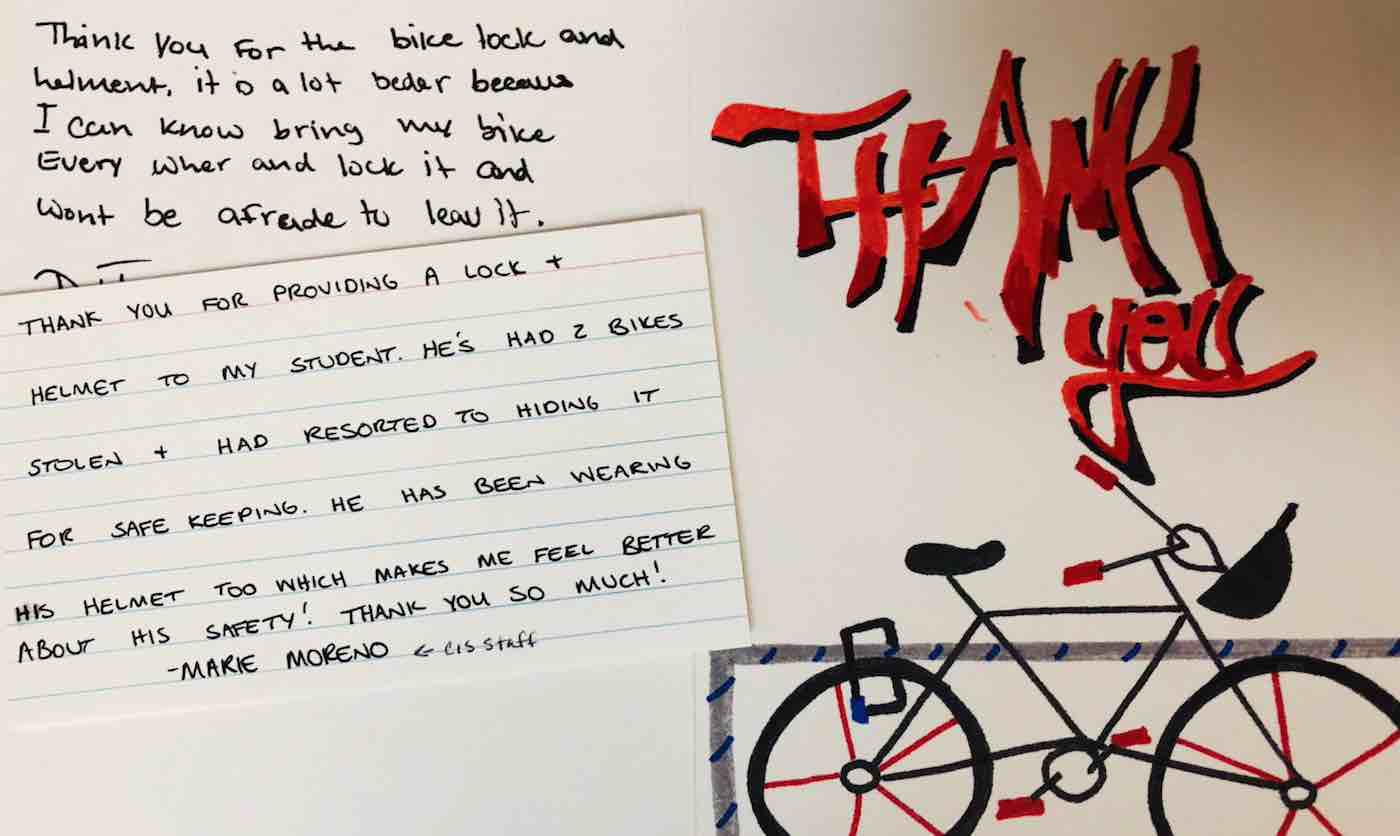 Thank you For the bike lock and
helment, it is a lot beder becaus
I can know bring my bike
Every wher and lock it and
wont be afraide to leav it.
THANK YOU FOR PROVIDING A LOCK +
HELMET TO MY STUDENT. HE'S HAD 2 BIKES
STOLEN + HAD RESORTED TO HIDING IT
FOR SAFE KEEPING. HE HAS BEEN WEARING
HIS HELMET TOO WHICH MAKES ME FEEL BETTER
ABOUT HIS SAFETY! THANK YOU SO MUCH!
-MARIE MORENO ← CIS Staff
THANK
you